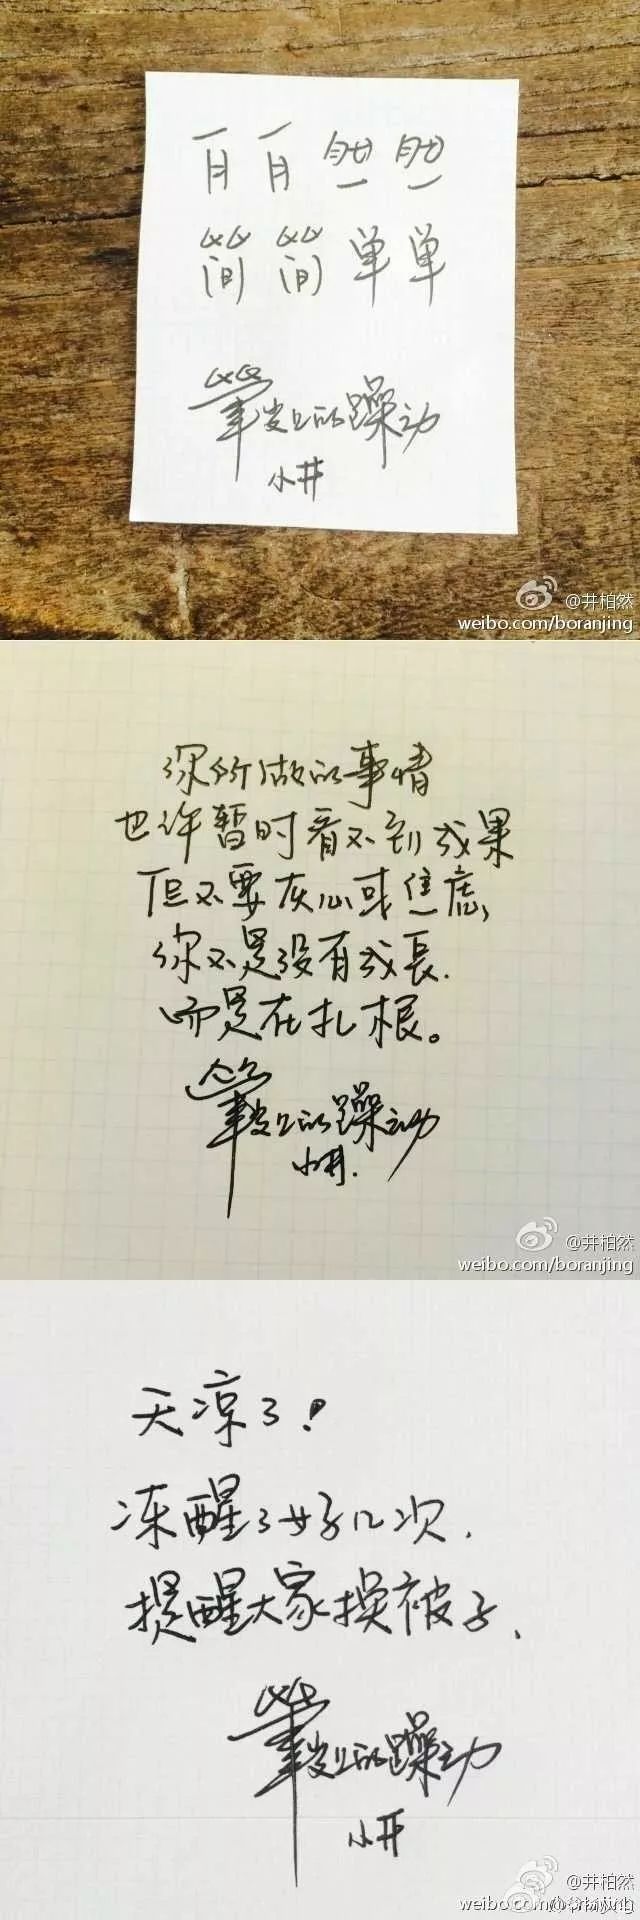 自自然然
简简单单
筆尖上的躁动
小井
@井柏然
weibo.com/boranjing
你所做的事情
也许暂时看不到成果
但不要灰心或焦虑,
你不是没有成長.
而是在扎根。
筆尖上的躁动
小井.
@井柏然
weibo.com/boranjing
天凉了!
冻醒了好几次.
提醒大家换被子.
筆尖上的躁动
小井
@井柏然
weibo.com/boranjing